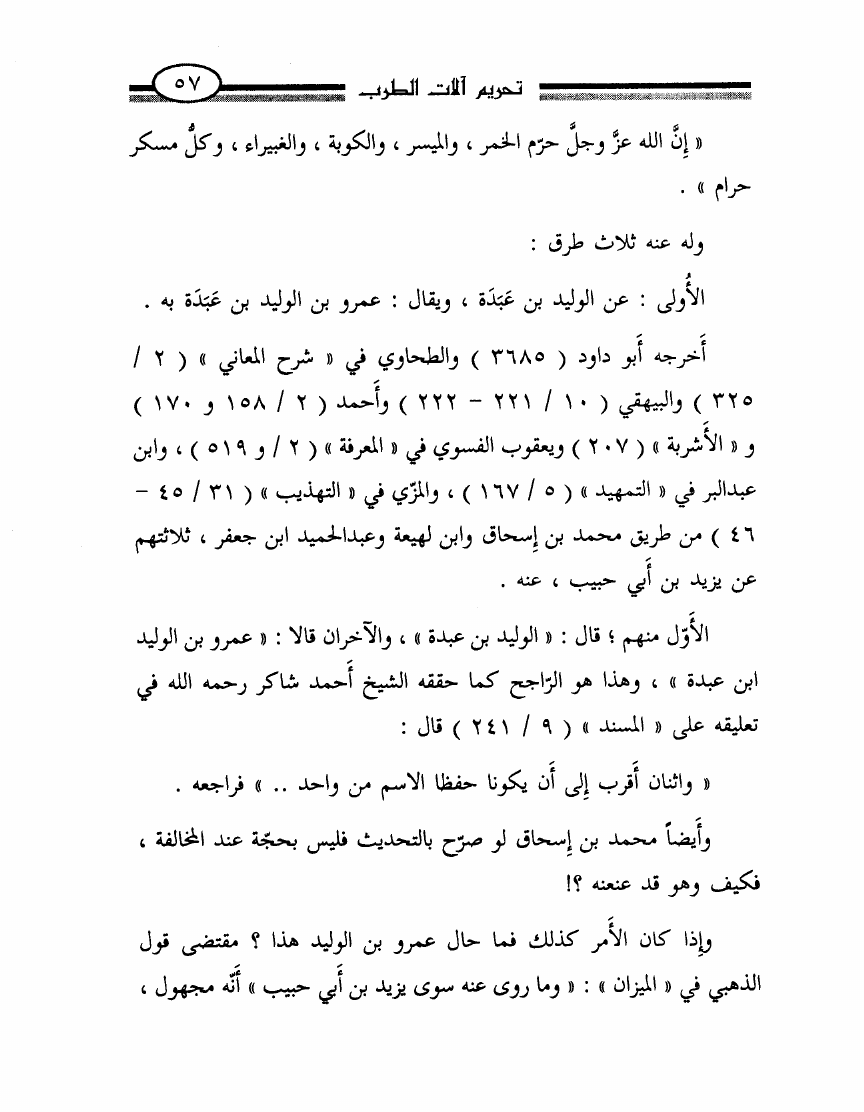 تحريم آلات الطرب ٥٧
« إنَّ الله عزَّ وجلَّ حرّم الخمر ، والميسر ، والكوبة ، والغبيراء ، وكلُّ مسكر
حرام » .
وله عنه ثلاث طرق :
الأُولى : عن الوليد بن عَبَدَة ، ويقال : عمرو بن الوليد بن عَبَدَة به .
أَخرجه أَبو داود ( ٣٦٨٥ ) والطحاوي في « شرح المعاني » ( ٢ /
٣٢٥ ) والبيهقي ( ١٠ / ٢٢١ – ٢٢٢ ) وأَحمد ( ٢ / ١٥٨ و ١٧٠ )
و « الأَشربة » ( ٢٠٧ ) ويعقوب الفسوي في « المعرفة » ( ٢ / و ٥١٩ ) ، وابن
عبدالبر في « التمهيد » ( ٥ / ١٦٧ ) ، والمزّي في « التهذيب » ( ٣١ / ٤٥ –
٤٦ ) من طريق محمد بن إِسحاق وابن لهيعة وعبدالحميد ابن جعفر ، ثلاثتهم
عن يزيد بن أَبي حبيب ، عنه .
الأَوّل منهم ؛ قال : « الوليد بن عبدة » ، والآخران قالا : « عمرو بن الوليد
ابن عبدة » ، وهذا هو الرّاجح كما حققه الشيخ أَحمد شاكر رحمه الله في
تعليقه على « المسند » ( ٩ / ٢٤١ ) قال :
« واثنان أَقرب إِلى أَن يكونا حفظا الاسم من واحد .. » فراجعه .
وأَيضاً محمد بن إِسحاق لو صرّح بالتحديث فليس بحجّة عند المخالفة ،
فكيف وهو قد عنعنه ؟!
وإِذا كان الأَمر كذلك فما حال عمرو بن الوليد هذا ؟ مقتضى قول
الذهبي في « الميزان » : « وما روى عنه سوى يزيد بن أَبي حبيب » أَنّه مجهول ،